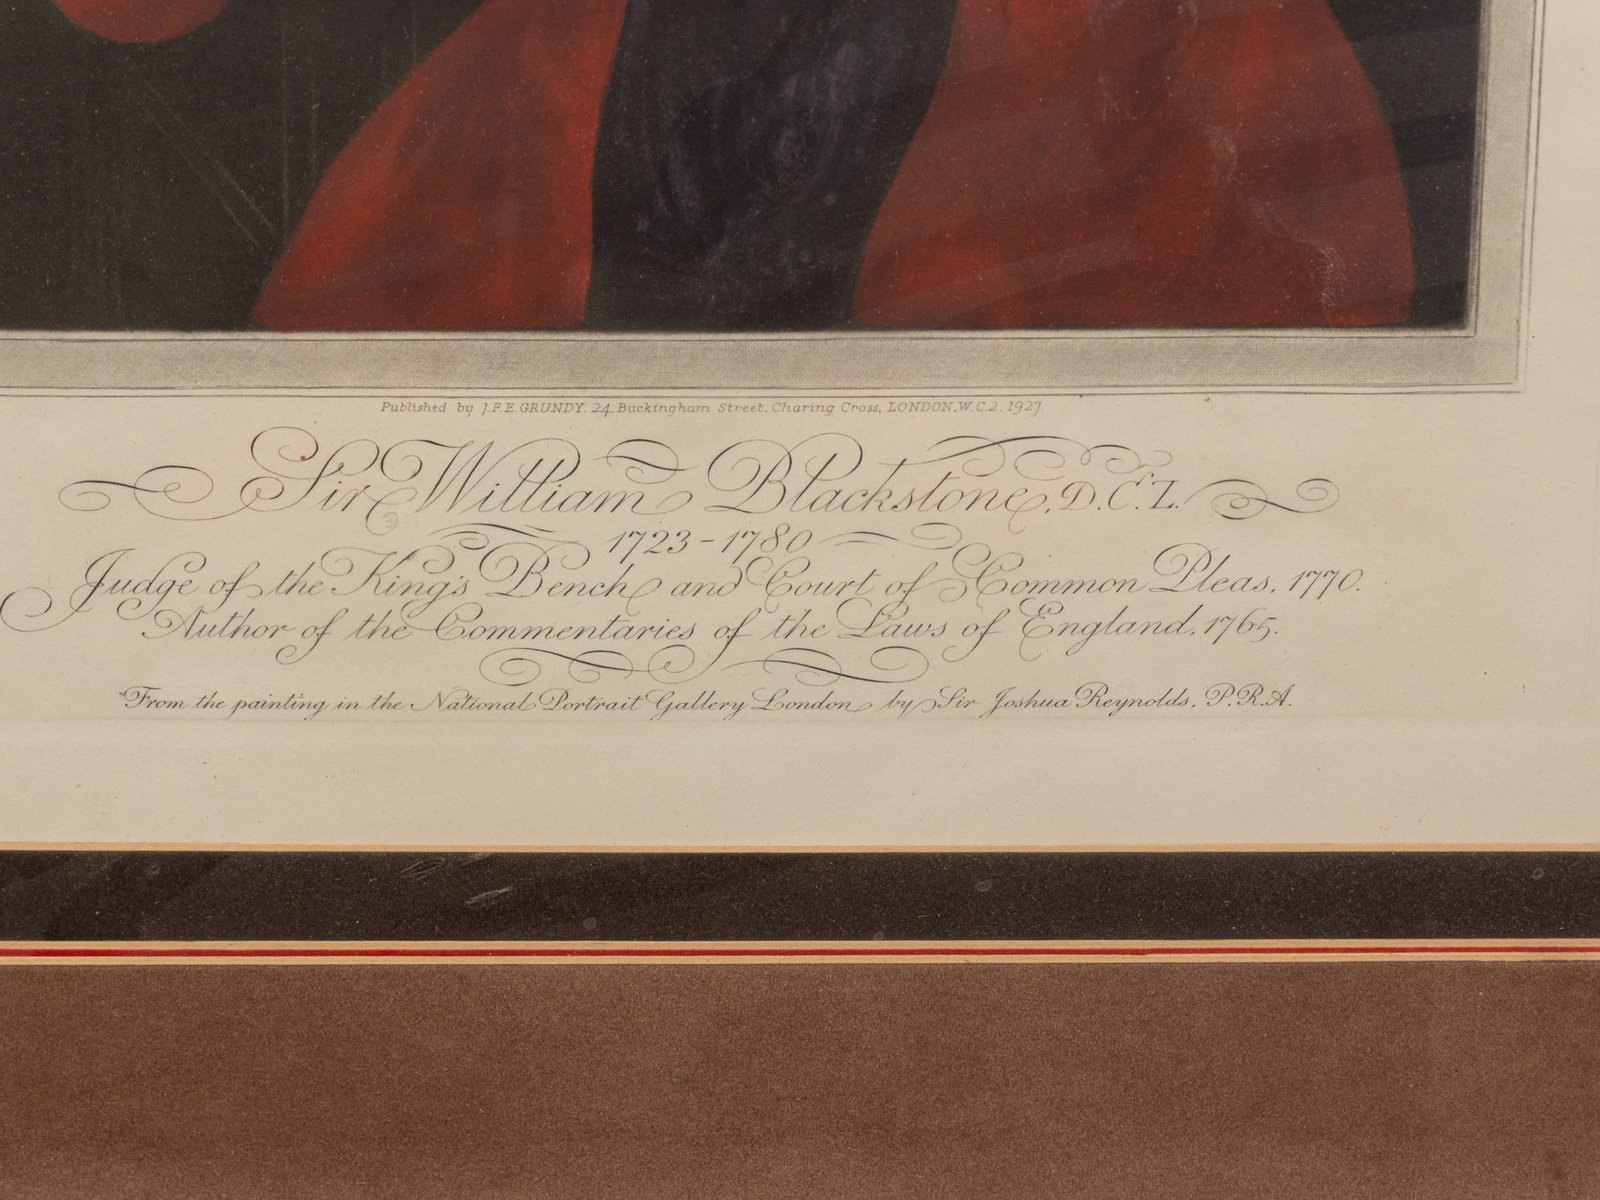 Published by J.F.E. GRUNDY, 24, Buckingham Street, Charing Cross, LONDON, W.C.2. 1927.
Sir William Blackstone, D.C.L.
1723-1780
Judge of the King's Bench and Court of Common Pleas, 1770.
Author of the Commentaries of the Laws of England, 1765.
From the painting in the National Portrait Gallery London by Sir Joshua Reynolds, P.R.A.